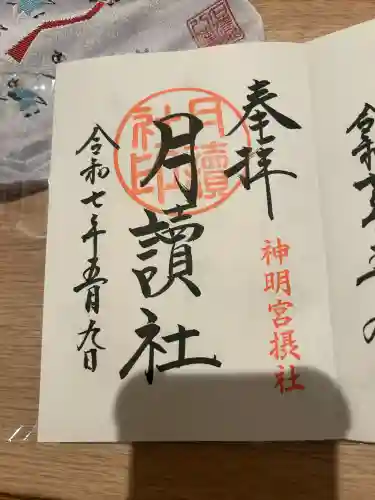 奉拝
神明宮摂社
月讀社
月讀社印
令和七年五月九日